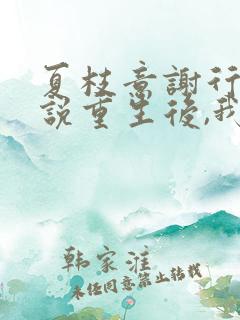 夏枝意謝行
説重生後,我
韩家淮
未经同意禁止转载